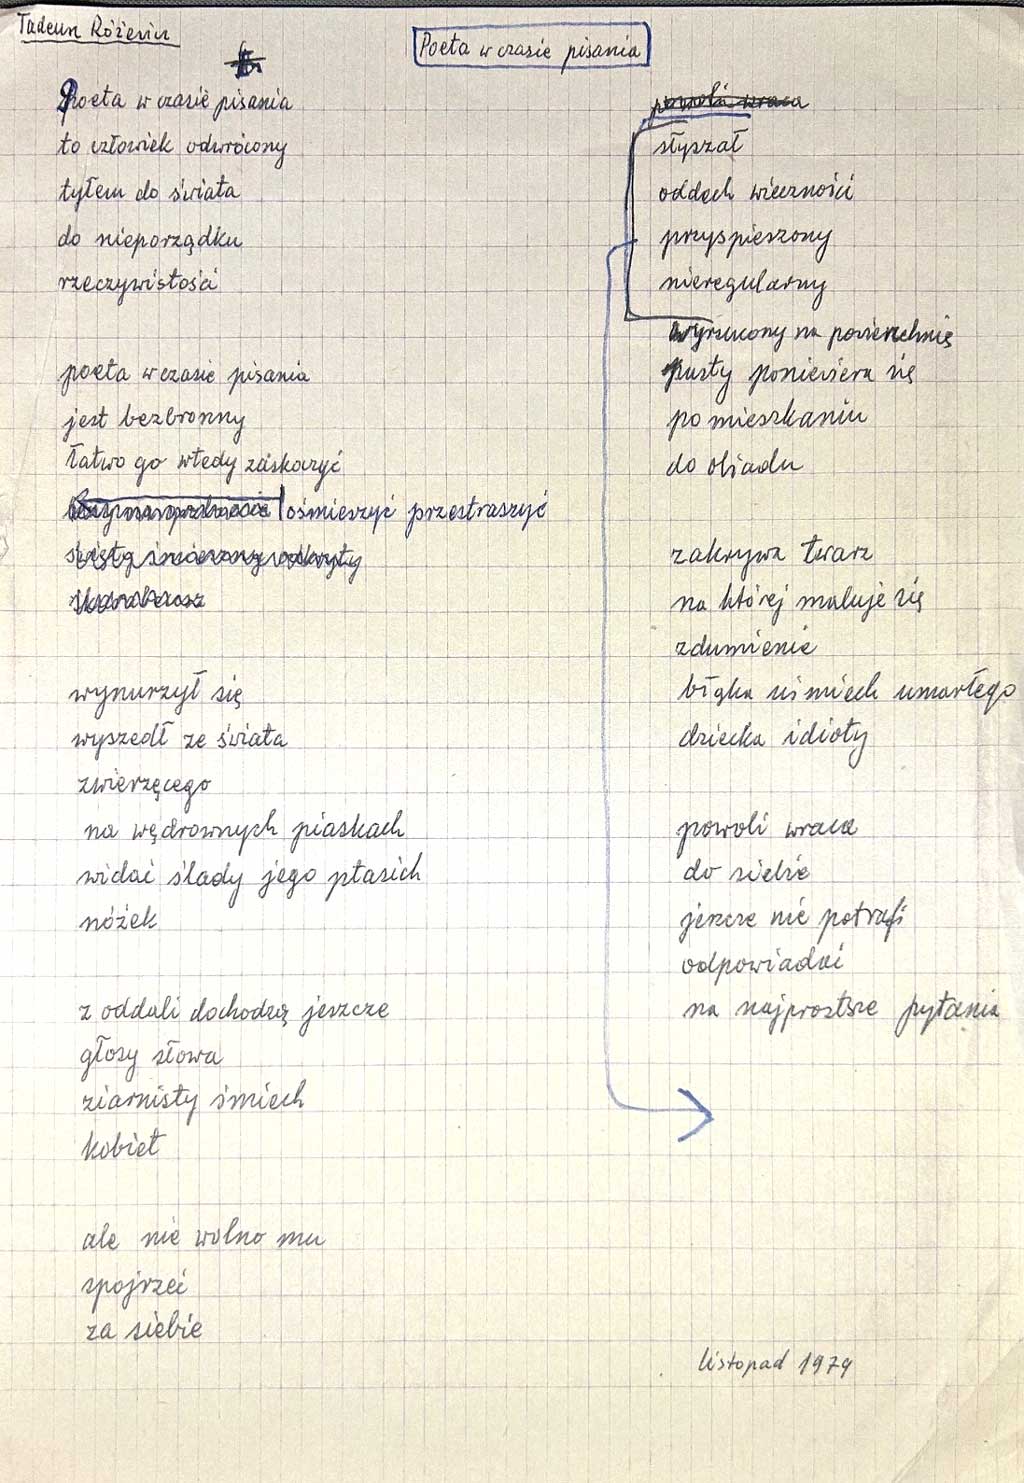 Tadeusz Różewicz
Poeta w czasie pisania
poeta w czasie pisania
to człowiek odwrócony
tyłem do świata
do nieporządku
rzeczywistości
poeta w czasie pisania
jest bezbronny
łatwo go wtedy zaskoczyć
ośmieszyć przestraszyć
wynurzył się
wyszedł ze świata
zwierzęcego
na wędrownych piaskach
widać ślady jego ptasich
nóżek
z oddali dochodzą jeszcze
głosy słowa
ziarnisty śmiech
kobiet
ale nie wolno mu
spojrzeć
za siebie
powoli wraca
słyszał
oddech wieczności
przyspieszony
nieregularny
wyrzucony na powierzchnię
pusty poniewiera się
po mieszkaniu
do obiadu
zakrywa twarz
na której maluje się
zdumienie
błąka uśmiech umarłego
dziecka idioty
powoli wraca
do siebie
jeszcze nie potrafi
odpowiadać
na najprostsze pytania
listopad 1979